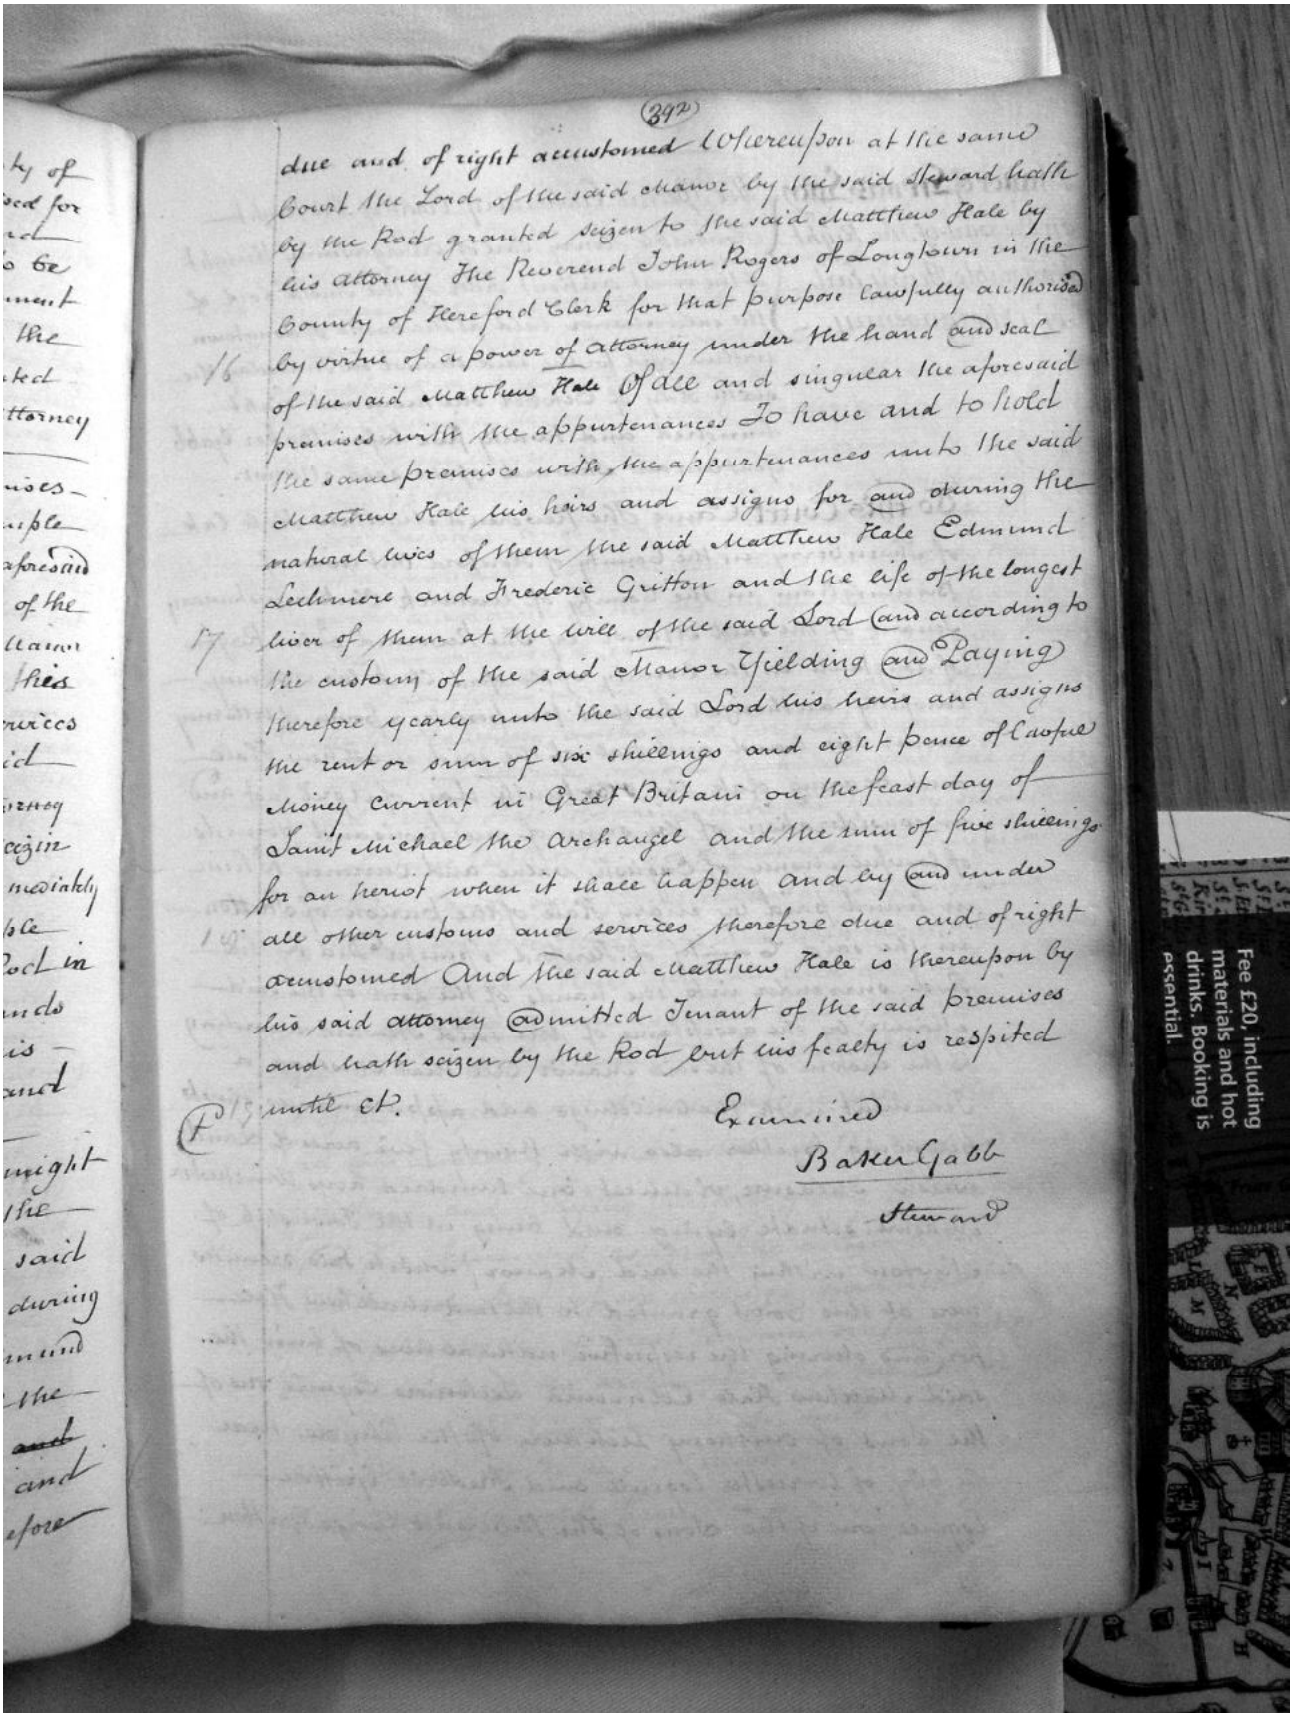 ty of
sed for
to be
ment
the
ated
ttorney
ises-
mple
aforesaid
of the
Manor
their
ervices
id
orney
eizin
mediately
ple
Rod in
ands
is -
and
might
the
said
during
mund
the
and
and
efore
392
due and of right accustomed Whereupon at the same
Court the Lord of the said Manor by the said Steward hath
by the Rod granted seizen to the said Matthew Hale by
his Attorney The Reverend John Rogers of Longtown in the
County of Hereford Clerk for that purpose lawfully authorised
16 by virtue of a power of Attorney under the hand and seal
of the said Matthew Hale Of all and singular the aforesaid
premises with the appurtenances To have and to hold
the same premises with the appurtenances unto the said
Matthew Hale his heirs and assigns for and during the
natural lives of them the said Matthew Hale Edmund
Lechmere and Frederic Gritton and the life of the longest
17 liver of them at the will of the said Lord and according to
the custom of the said Manor Yielding and Paying
therefore yearly unto the said Lord his heirs and assigns
the rent or sum of six shillings and eight pence of lawful
Money current in Great Britain on the feast day of
Saint Michael the Archangel and the sum of five shillings
for an heriot when it shall happen and by and under
all other customs and services therefore due and of right
accustomed And the said Matthew Hale is thereupon by
his said attorney admitted Tenant of the said premises
and hath seizen by the Rod but his fealty is respited
until &c.
Examined
Baker Gabb
Steward
Fee £20, including
materials and hot
drinks. Booking is
essential.